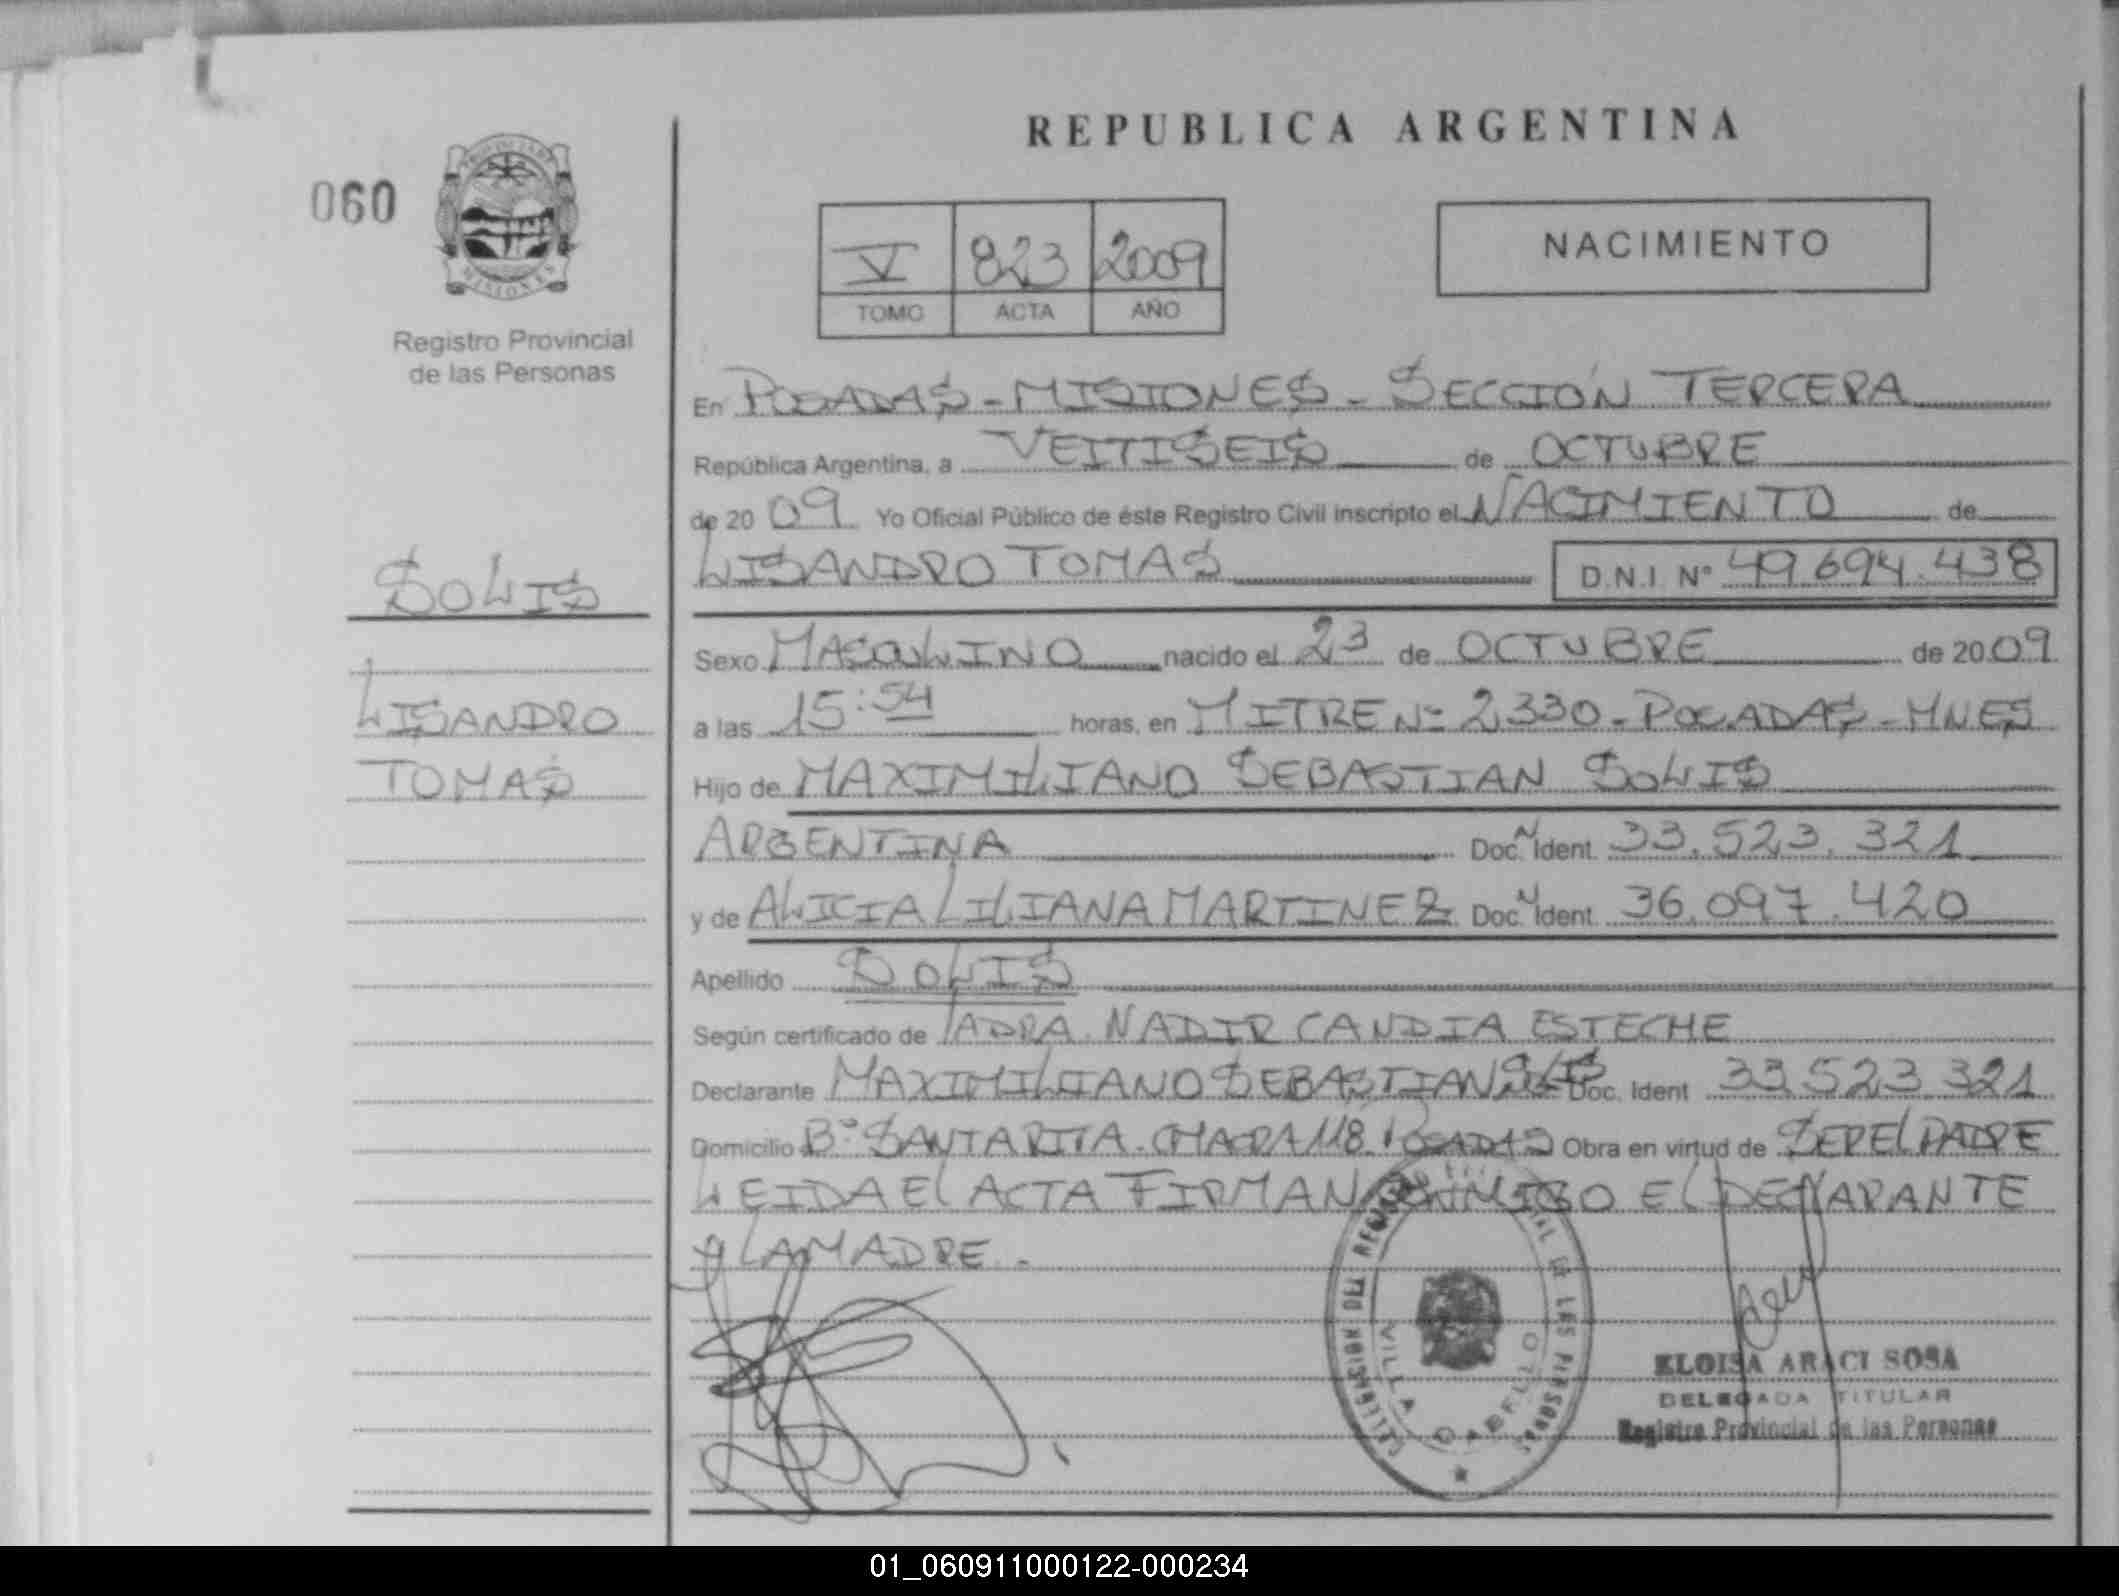 REPUBLICA ARGENTINA
060
PROVINCIA DE
MISIONES
Registro Provincial
de las Personas
V 823 2009
TOMO ACTA AÑO
NACIMIENTO
En POSADAS - MISIONES - SECCIÓN TERCERA
República Argentina, a VEITISEIS de OCTUBRE
de 2009 Yo Oficial Público de éste Registro Civil inscripto el NACIMIENTO de
LISANDRO TOMAS D.N.I. Nº 49.694.438
SOLIS
LISANDRO
TOMAS
Sexo MASCULINO nacido el 23 de OCTUBRE de 2009
a las 15:54 horas, en MITRE Nº 2330 - POSADAS - MNES
Hijo de MAXIMILIANO SEBASTIAN SOLIS
ARGENTINA Doc. N Ident. 33.523.321
y de ALICIA LILIANA MARTINEZ Doc. N Ident. 36.097.420
Apellido SOLIS
Según certificado de NADIR CANDIA ESTECHE
Declarante MAXIMILIANO SEBASTIAN SOLIS Doc. Ident 33.523.321
Domicilio Bº SANTA RITA. CHACRA 118. POSADAS Obra en virtud de SER EL PADRE
LEIDA EL ACTA FIRMAN CONMIGO EL DECLARANTE
Y LA MADRE.
VILLA CABELLO
ELOISA ARACI SOSA
DELEGADA TITULAR
Registro Provincial de las Personas
01_060911000122-000234